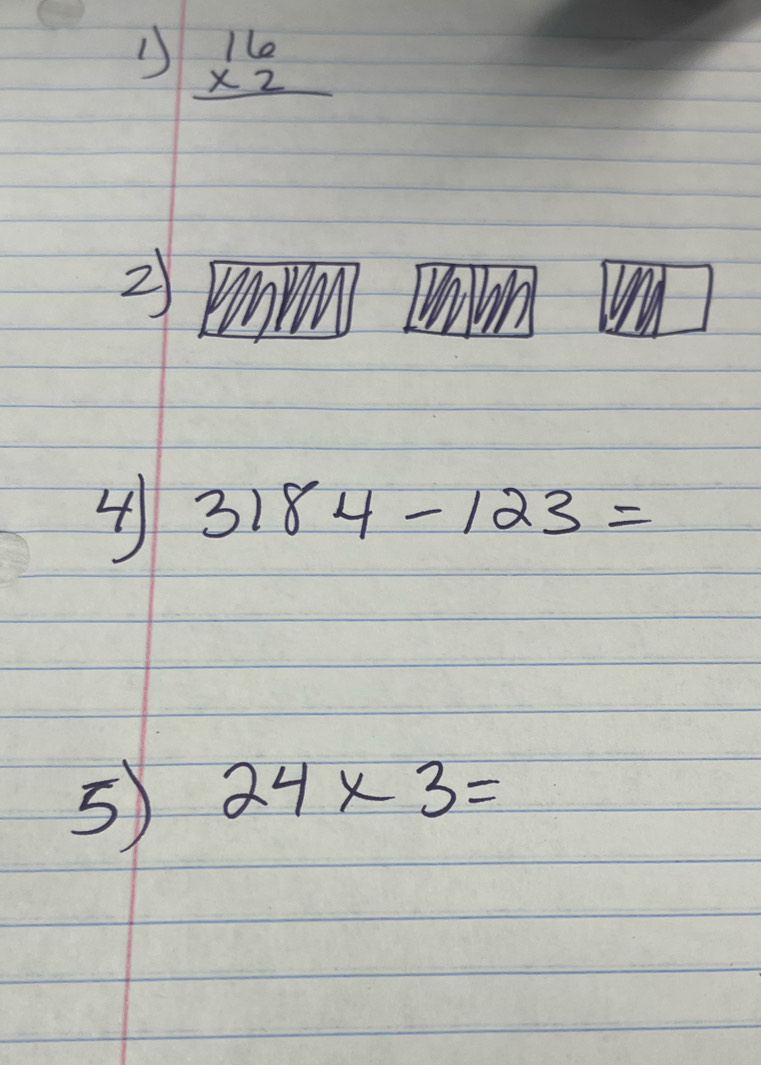 1) 16
x 2
2)
4) 3184 - 123 =
5) 24 x 3 =